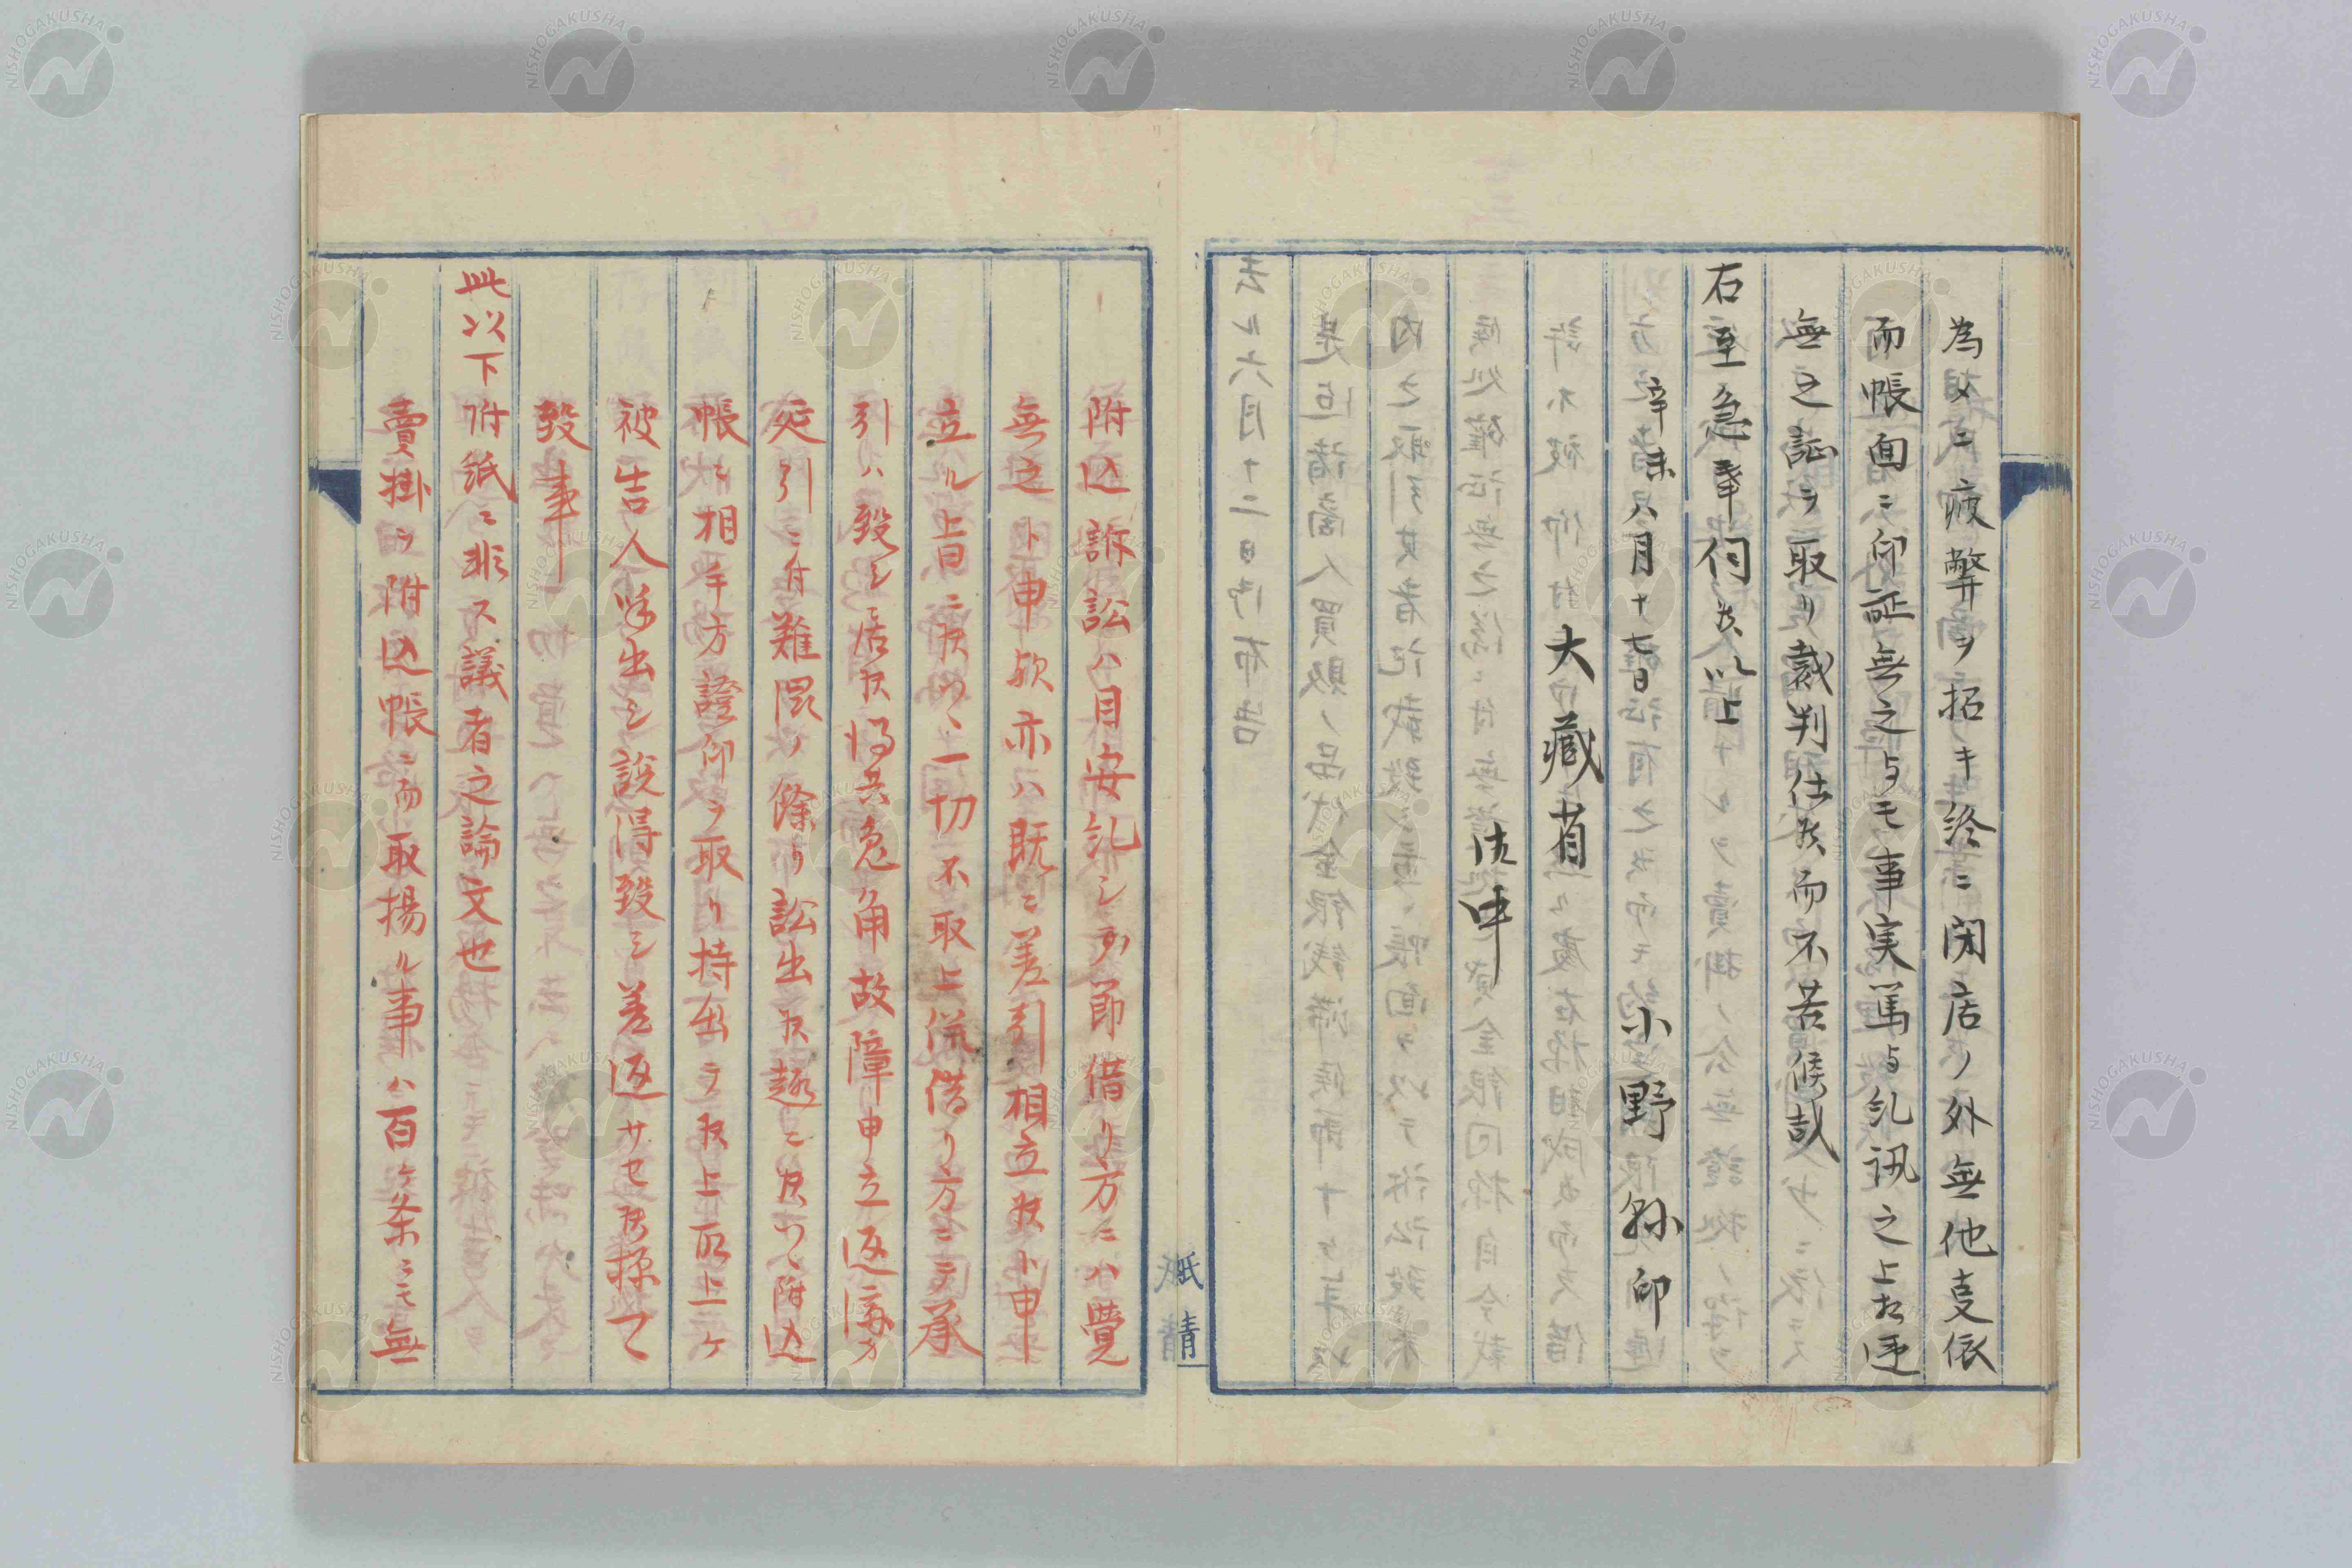 為メニ疲弊ヲ招キ終ニ閉店ノ外無他事依
而帳面ニ印証無之与モ事実篤与糺訊之上相違
無之証ヲ取リ裁判仕候而不苦候哉
右至急奉伺候以上
辛未八月十七日
小野孫印
大蔵省
御中
附込訴訟ハ目安糺シ之節借リ方ニハ覺
無之ト申歟亦ハ既ニ差引相立候ト申
立ル上旨ニ候ハヽ一切不取上併借リ方ニテ承
引ハ致シ居候得共兔角故障申立返済方
延引ニ付難混ノ餘リ訟出候趣ニ候ハヽ附込
帳ニ相手方證印ヲ取リ持出ラ候上取上ケ
被告人呼出シ説得致シ差返サセ候様可
致事
此以下附紙ニ非ス議者之論文也
賣掛ヲ附込帳ニ而取揚ル事ハ百ケ条ニモ無
紙 精
NISHOGAKUSHA